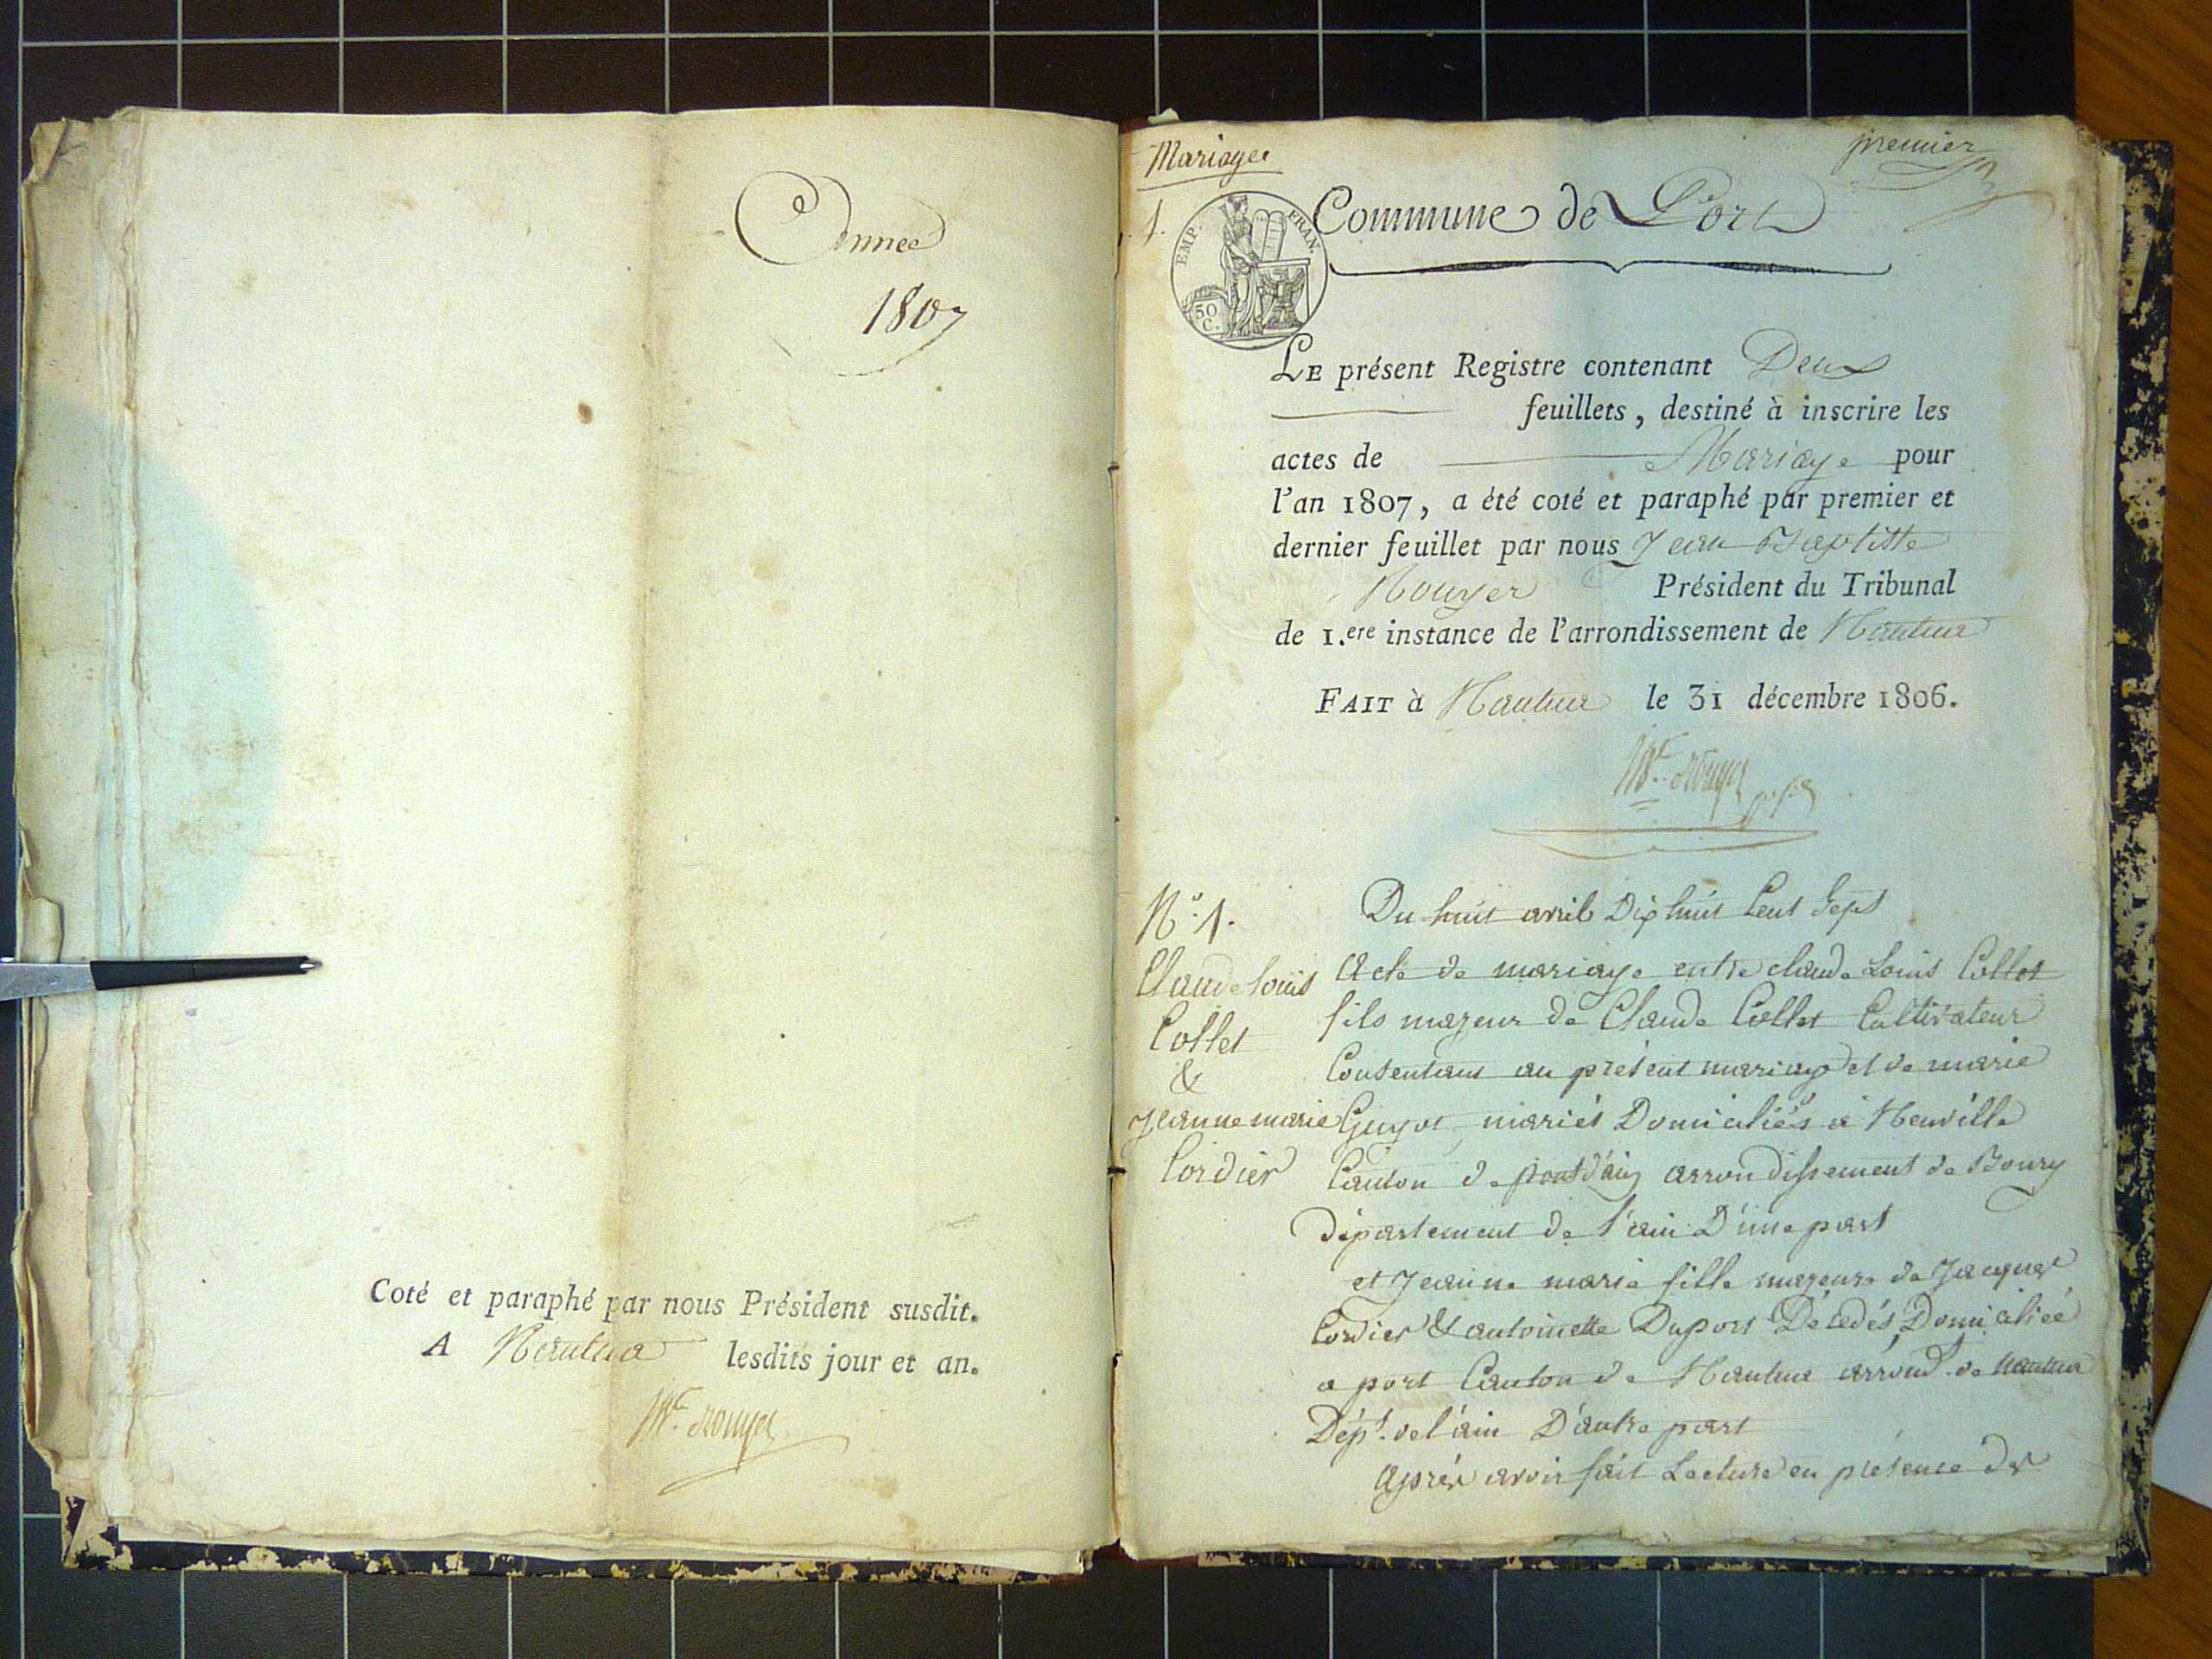 Année
1807
Coté et paraphé par nous Président susdit.
A Nantua lesdits jour et an.
Mariages
premier
1.
EMP. FRAN.
50 C.
Commune de Port
LE présent Registre contenant Deux
feuillets, destiné à inscrire les
actes de Mariage pour
l'an 1807, a été coté et paraphé par premier et
dernier feuillet par nous Jean Baptiste
Rouyer Président du Tribunal
de 1.ere instance de l'arrondissement de Nantua
FAIT à Nantua le 31 décembre 1806.
N.º 1.
Claude louis
Collet
&
Jeanne marie
Cordier
Du huit avril Dix huit Cent Sept
Acte de mariage entre claude Louis Collet
fils majeur de Claude Collet Cultivateur
Consentant au présent mariage et de marie
Guyot, mariés Domiciliés à Neuville
Canton de pont d'ain arrondissement de Bourg
département de l'ain D'une part
et Jeanne marie fille majeure de Jacques
Cordier & antoinette Duport Décédés Domiciliée
a port Canton de Nantua arrond.t de nantua
Dép.t de l'ain D'autre part
après avoir fait Lecture en présence de